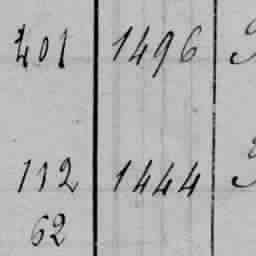 401 1496
112 1444
62